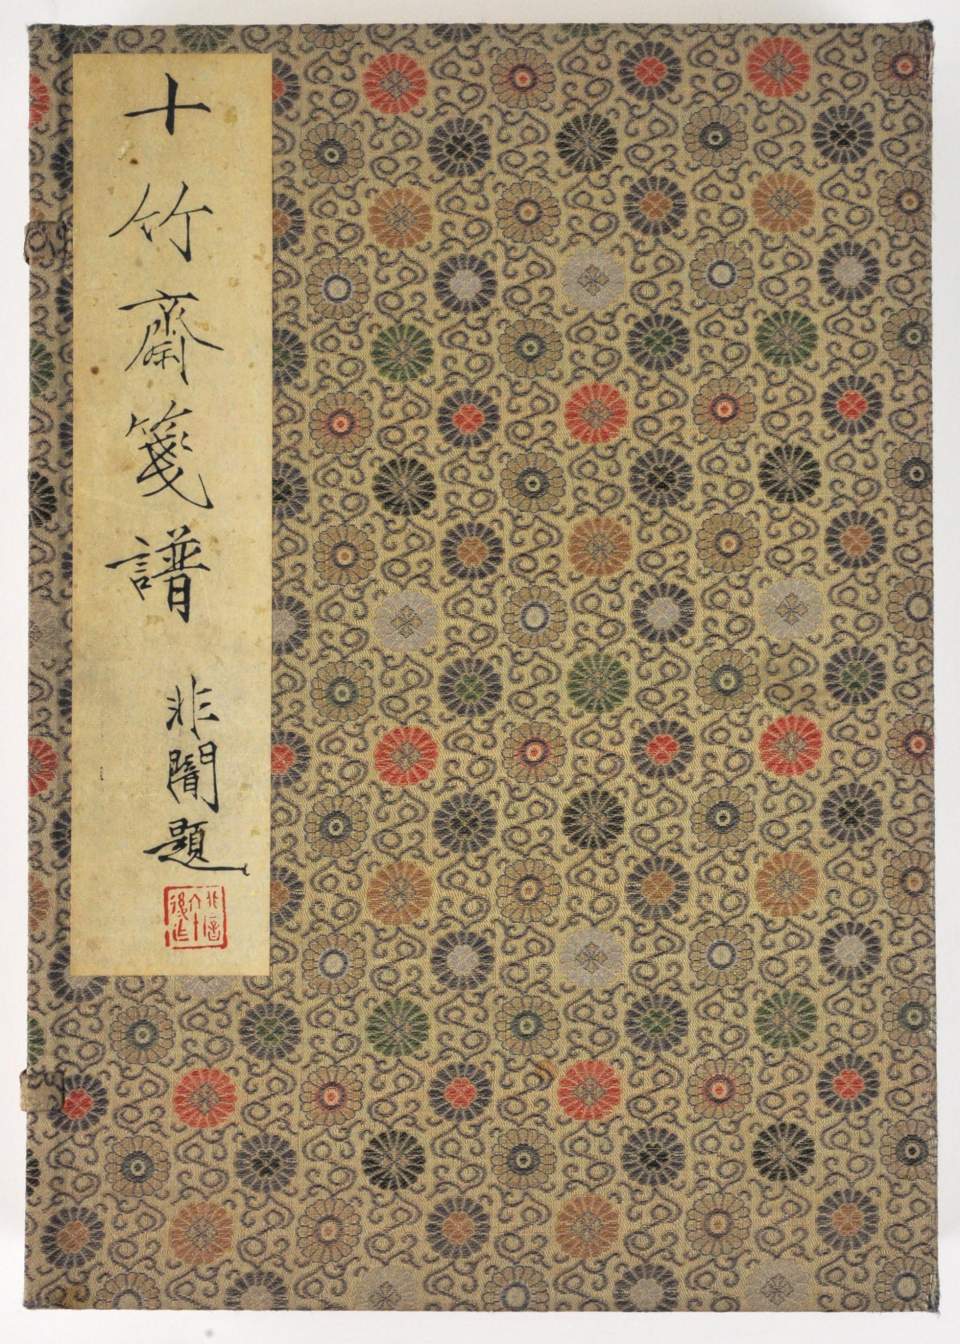 十竹齋箋譜
非闇題